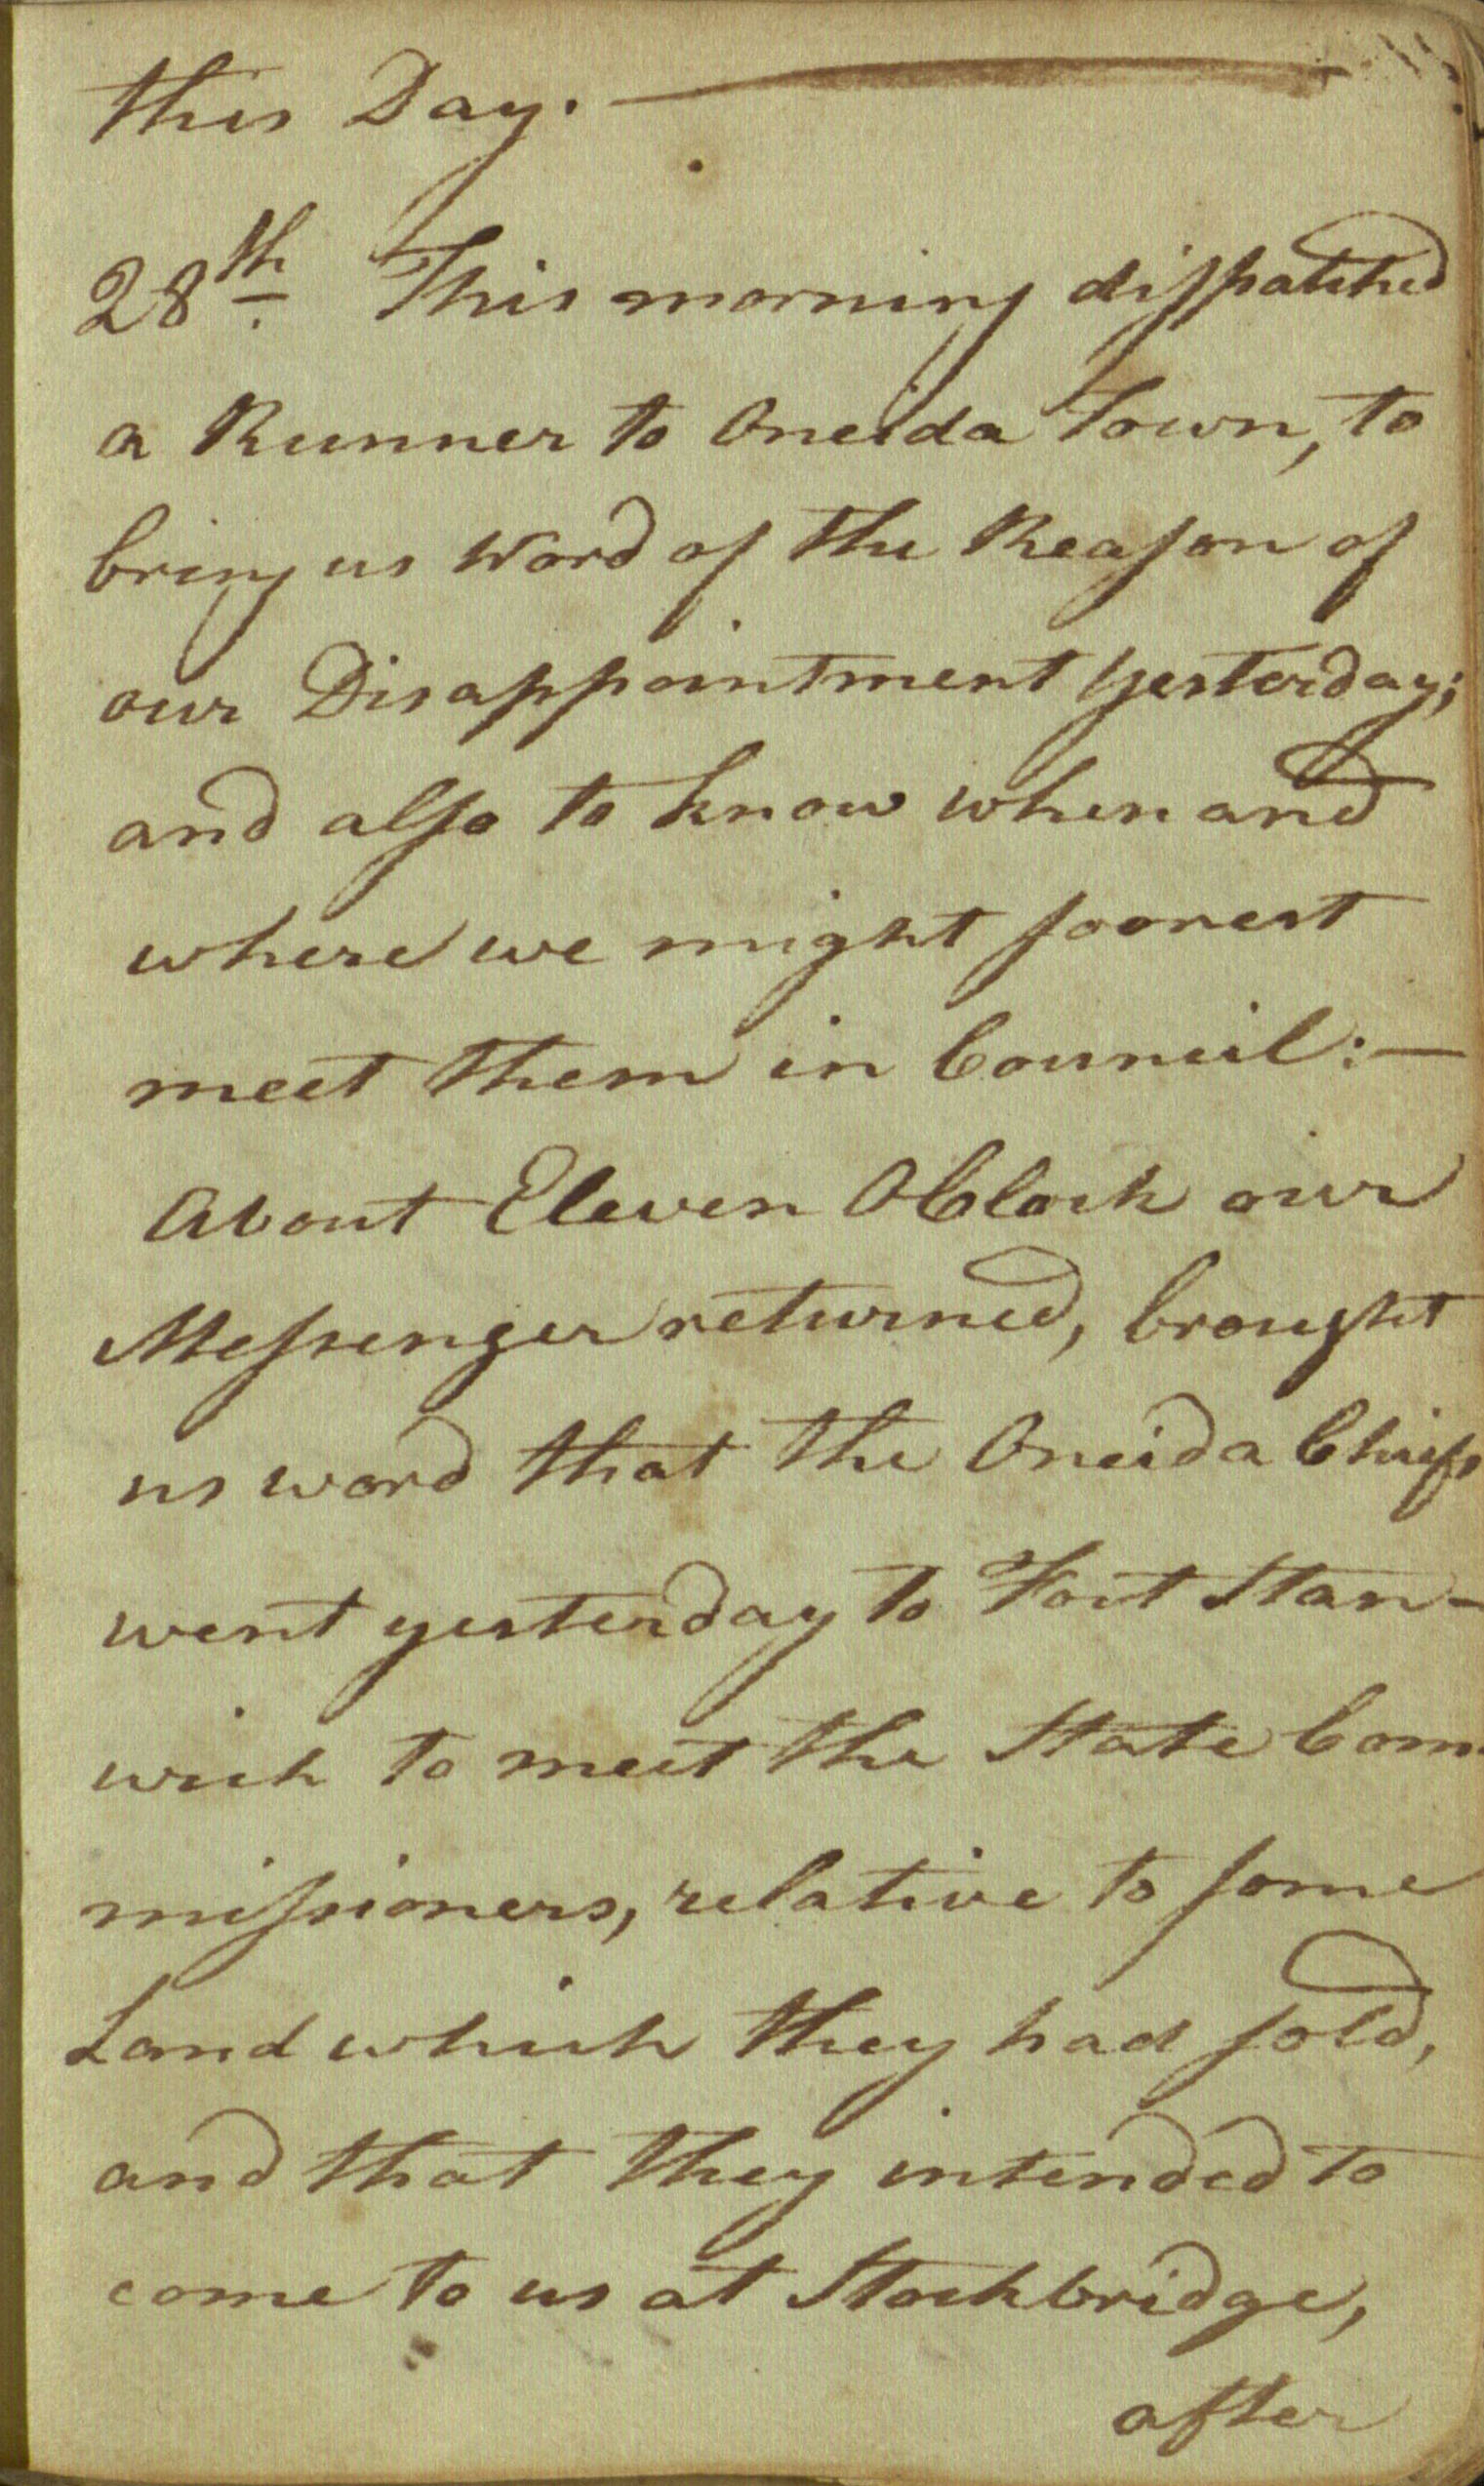 this Day. —
28th. This morning dispatched
a Runner to Oneida Town, to
bring us Word of the Reason of
our Disappointment yesterday;
and also to know when and
where we might soonest
meet them in Council: —
About Eleven OClock our
Messenger returned, brought
us word that the Oneida Chiefs
went yesterday to Fort Stan-
wich to meet the State Com
missioners, relative to some
Land which they had sold,
and that they intended to
come to us at Stockbridge,
after